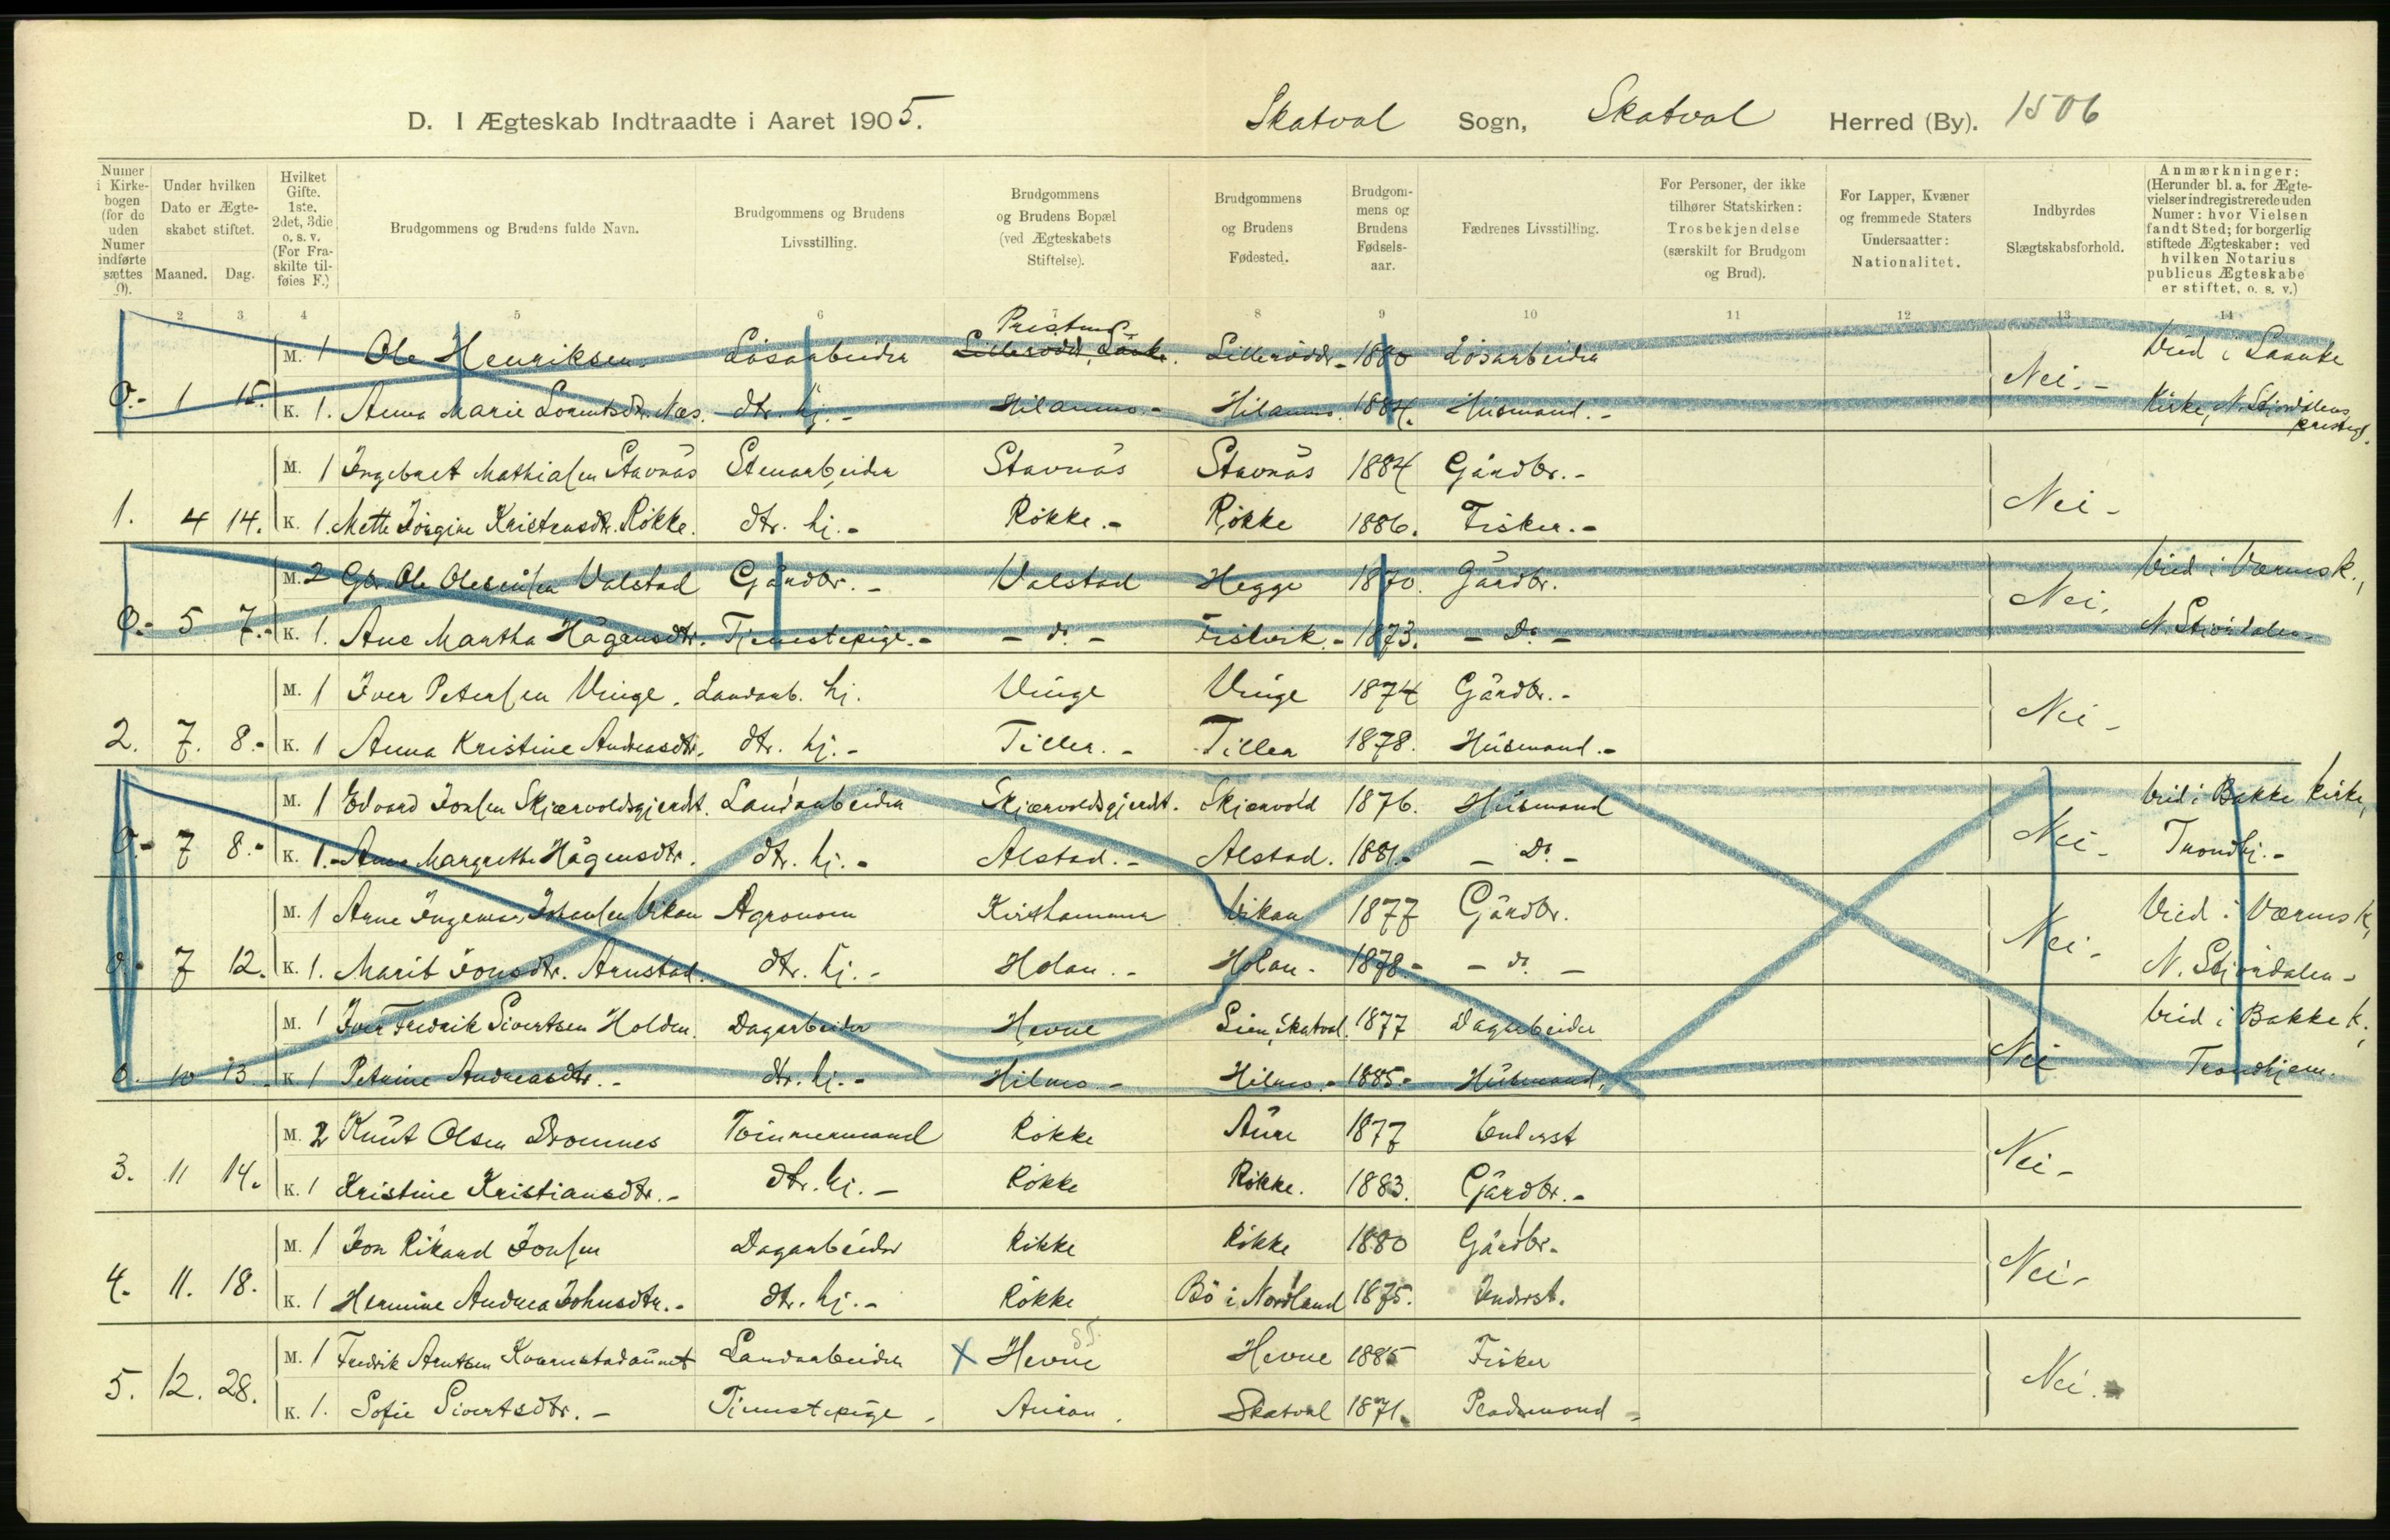 D. I Ægteskab Indtraadte i Aaret 1905. Skatval Sogn, Skatval Herred (By). 1506
Numer i Kirkebogen (for de uden Numer indførte sættes 0).
Under hvilken Dato er Ægteskabet stiftet. Maaned. Dag.
Hvilket Gifte. 1ste, 2det, 3die o. s. v. (For Fraskilte tilføies F.)
Brudgommens og Brudens fulde Navn.
Brudgommens og Brudens Livsstilling.
Brudgommens og Brudens Bopæl (ved Ægteskabets Stiftelse).
Brudgommens og Brudens Fødested.
Brudgommens og Brudens Fødselsaar.
Fædrenes Livsstilling.
For Personer, der ikke tilhører Statskirken: Trosbekjendelse (særskilt for Brudgom og Brud).
For Lapper, Kvæner og fremmede Staters Undersaatter: Nationalitet.
Indbyrdes Slægtskabsforhold.
Anmærkninger: (Herunder bl. a. for Ægtevielser indregistrerede uden Numer: hvor Vielsen fandt Sted; for borgerlig stiftede Ægteskaber: ved hvilken Notarius publicus Ægteskabe er stiftet, o. s. v.)
2 3 4 5 6 7 8 9 10 11 12 13 14
M. 1 Ole Henriksen. Løsarbeider Lillerødd, Lånke. Lillerødd - 1880 Løsarbeider Nei.- Vied i Laanke
0.- 1 15. K. 1. Anna Marie Lorentsdtr. Næs. dtr. hj.- Hilanmo.- Hilanmo. 1884. Husmand.- Kirke, N. Stjørdalens prestegj.
M. 1 Ingebret Mathiasen Stavnås Stenarbeider Stavnås Stavnås 1884 Gårdbr.- Nei -
1. 4 14. K. 1. Mette Jørgine Kristensdtr. Røkke. dtr. hj.- Røkke.- Røkke 1886. Fisker.-
M. 2 Ole Valstad Gårdbr.- Valstad Hegge 1870. Gårdbr. Nei. Vied i Værnes k.,
0.- 5 7.- K. 1. Ane Martha Hågensdtr. Tjenestepige.- - do - Fistvik.- 1873. - Do - N. Stjørdalen.
M. 1 Iver Petersen Vinge. Landarb. hj. Vinge Vinge 1874 Gårdbr.- Nei -
2. 7. 8.- K. 1 Anna Kristine Andreasdtr. dtr. hj.- Tiller.- Tiller 1878. Husmand.-
M. 1 Edvard Jonsen Skjærvoldsgjerdt. Landarbeider Skjærvoldsgjerdt. Skjærvold 1876. Husmand Nei - Vied i Bakke Kirke,
0.- 7 8.- K. 1.- Anna Margrethe Hågensdtr. dtr. hj.- Alstad.- Alstad. 1881.- - Do - Trondhj.-
M. 1 Arne Johansen Vikan Agronom Vikan 1877 Gårdbr. Nei. Vied i Værnes k,
0.- 7 12. K. 1. Marit Jonsdtr. Arnstad. dtr. hj.- Holan.- Holan.- 1878.- - do - N. Stjørdalen -
M. 1 Iver Fredrik Sivertsen Holden. Dagarbeider Hevne Lien, Skatval. 1877 Dagarbeider Nei Vied i Bakke k.,
0. 10 13. K. 1 Petrine Andreasdtr.- dtr. hj.- Hilmo - Hilmo.- 1885.- Husmand. Trondhjem.
M. 2 Knut Olsen Dromnes Tømmermand Røkke Aure 1877 Underst Nei -
3. 11 14. K. 1 Kristine Kristiansdtr.- dtr. hj.- Røkke Røkke. 1883. Gårdbr.-
M. 1 Jon Rikard Jonsen Dagarbeider Røkke Røkke 1880 Gårdbr. Nei -
4. 11. 18. K. 1 Hermine Andrea Johnsdtr.- dtr. hj.- Røkke Bö i Nordland 1875. Underst.
M. 1 Fredrik Arntsen Kvernstadaunet Landarbeider X Hevne Hevne 1885 Fisker Nei.
5. 12. 28. K. 1. Sofie Sivertsdtr.- Tjenestepige. Auran. Skatval 1871. Pladsmand -